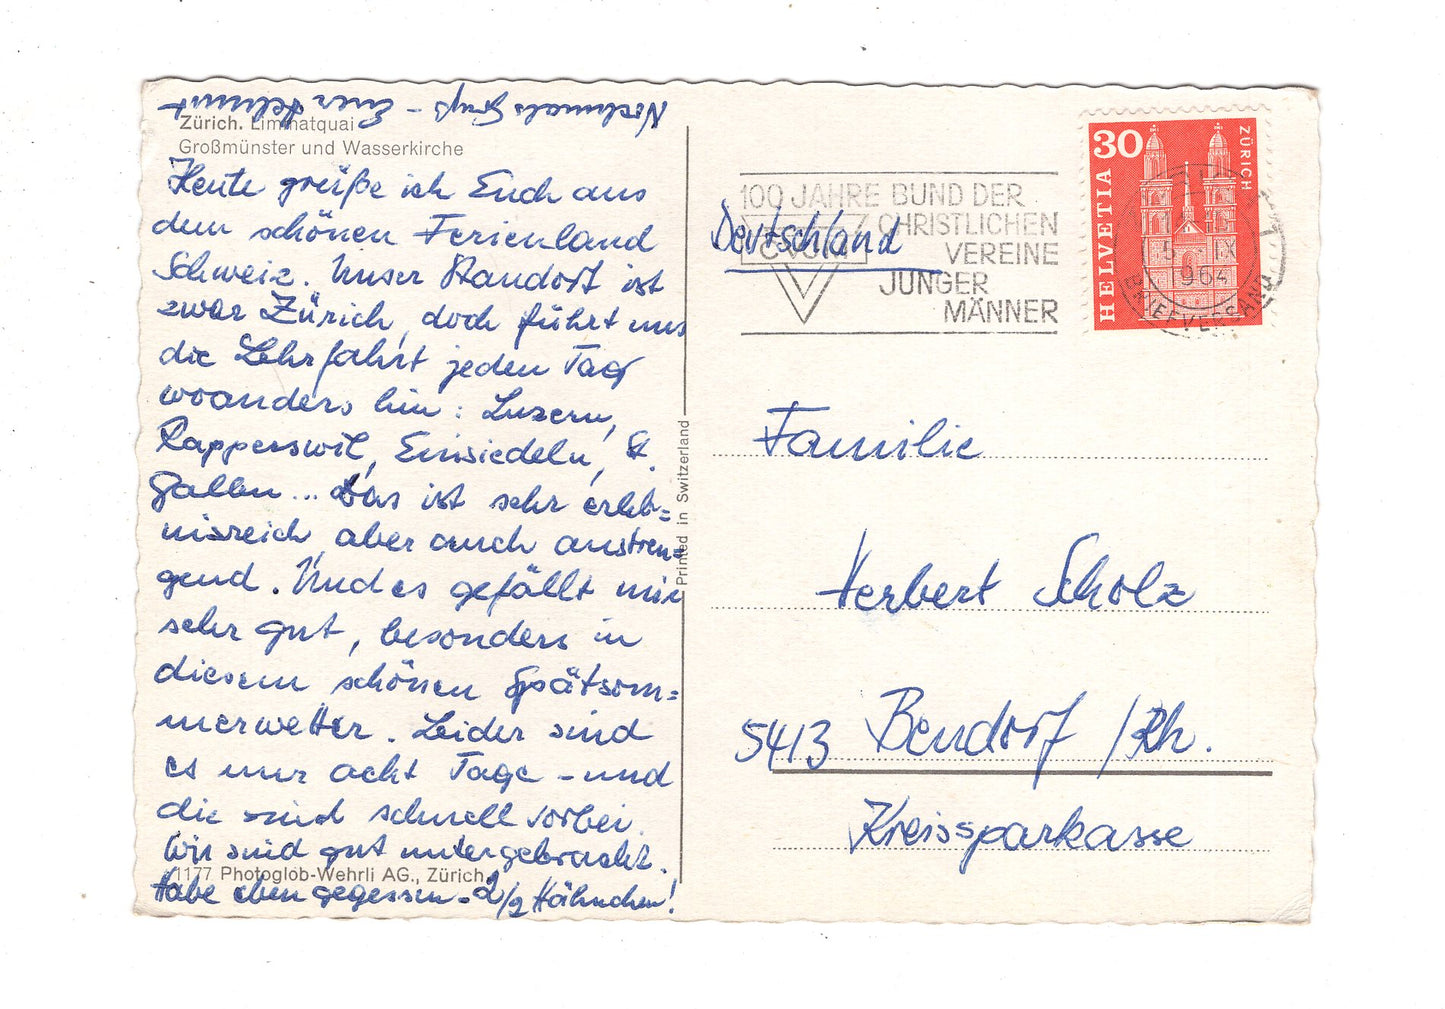 Nochmals Gruß - Euer Helmut
Zürich. Limmatquai
Großmünster und Wasserkirche
Heute grüße ich Euch aus
dem schönen Ferienland
Schweiz. Unser Standort ist
zwar Zürich, doch führt uns
die Lehrfahrt jeden Tag
woanders hin: Luzern,
Rapperswil, Einsiedeln, St.
Gallen... Das ist sehr erleb=
nisreich, aber auch anstren=
gend. Und es gefällt mir
sehr gut, besonders in
diesem schönen Spätsom=
merwetter. Leider sind
es nur acht Tage - und
die sind schnell vorbei.
Wir sind gut untergebracht.
1177 Photoglob-Wehrli AG., Zürich
Habe eben gegessen - 1/2 Hähnchen!
Printed in Switzerland
100 JAHRE BUND DER
CHRISTLICHEN
VEREINE
JUNGER
MÄNNER
CVJM
Deutschland
30
HELVETIA
ZÜRICH
5. IX
1964
BRIEFVERSAND
Familie
Herbert Scholz
5413 Bendorf /Rh.
Kreissparkasse